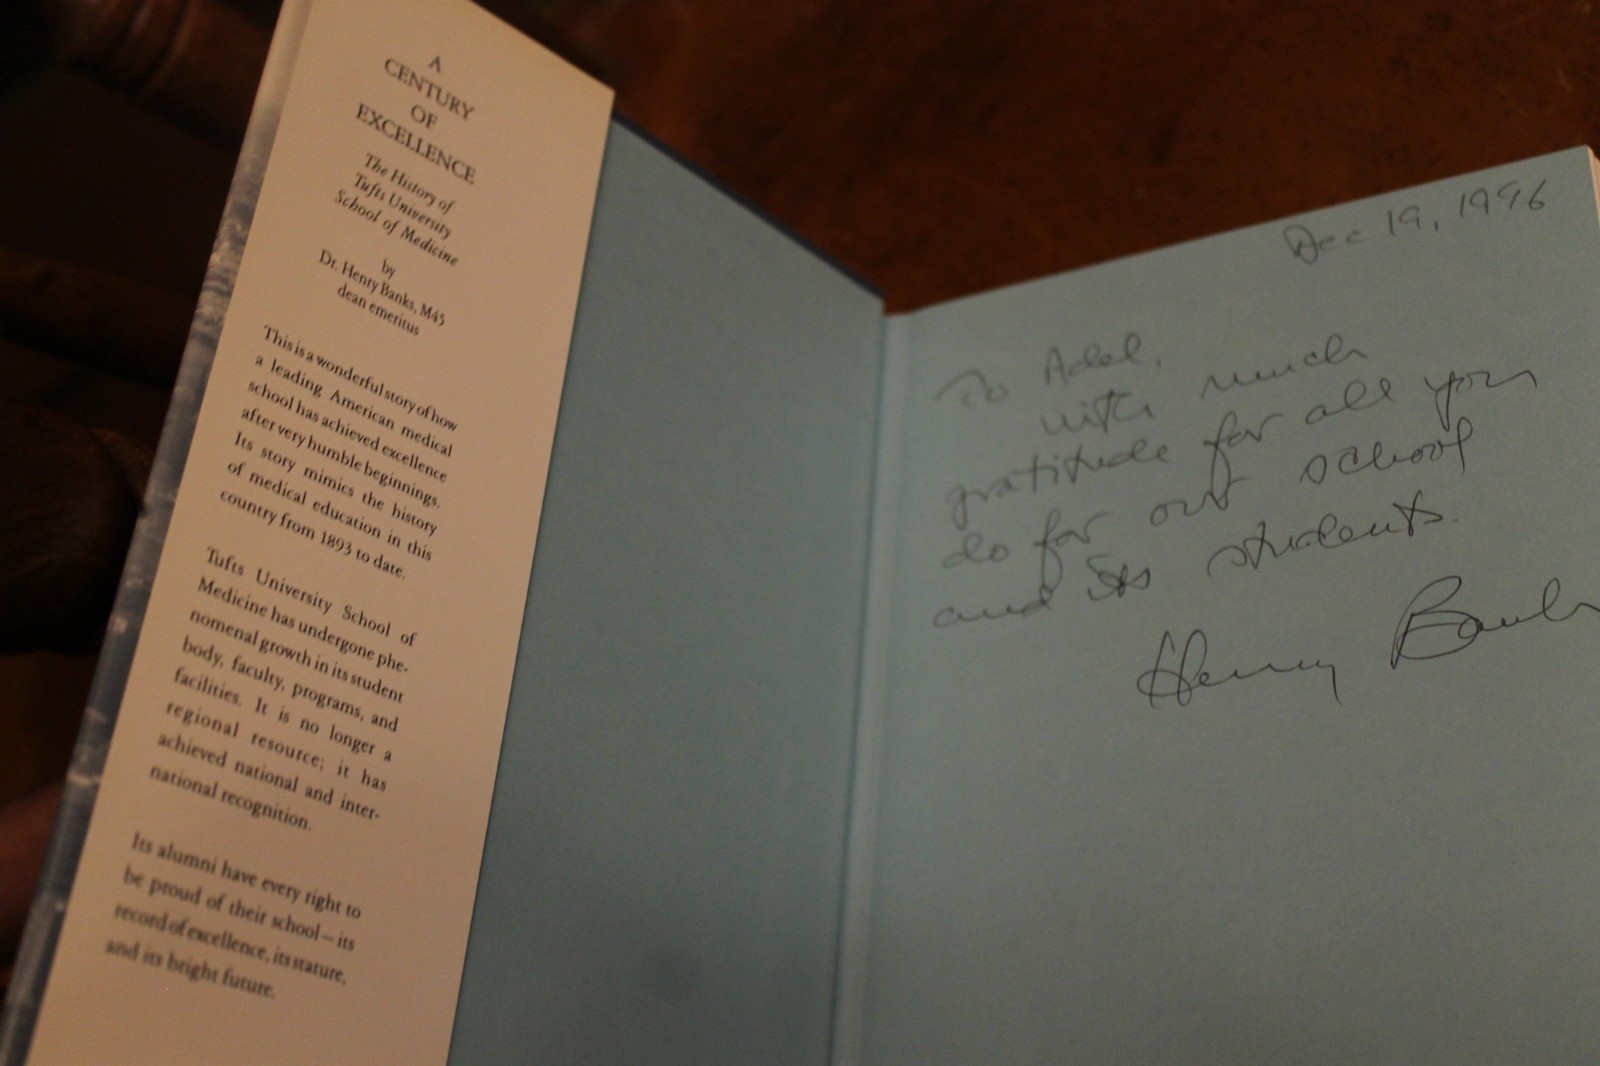 A
CENTURY
OF
EXCELLENCE
The History of
Tufts University
School of Medicine
by
Dr. Henry Banks, M45
dean emeritus
This is a wonderful story of how
a leading American medical
school has achieved excellence
after very humble beginnings.
Its story mimics the history
of medical education in this
country from 1893 to date.
Tufts University School of
Medicine has undergone phe-
nomenal growth in its student
body, faculty, programs, and
facilities. It is no longer a
regional resource; it has
achieved national and inter-
national recognition.
Its alumni have every right to
be proud of their school—its
record of excellence, its stature,
and its bright future.
Dec 19, 1996
To Adel,
with much
gratitude for all you
do for our school
and its students.
Henry Banks